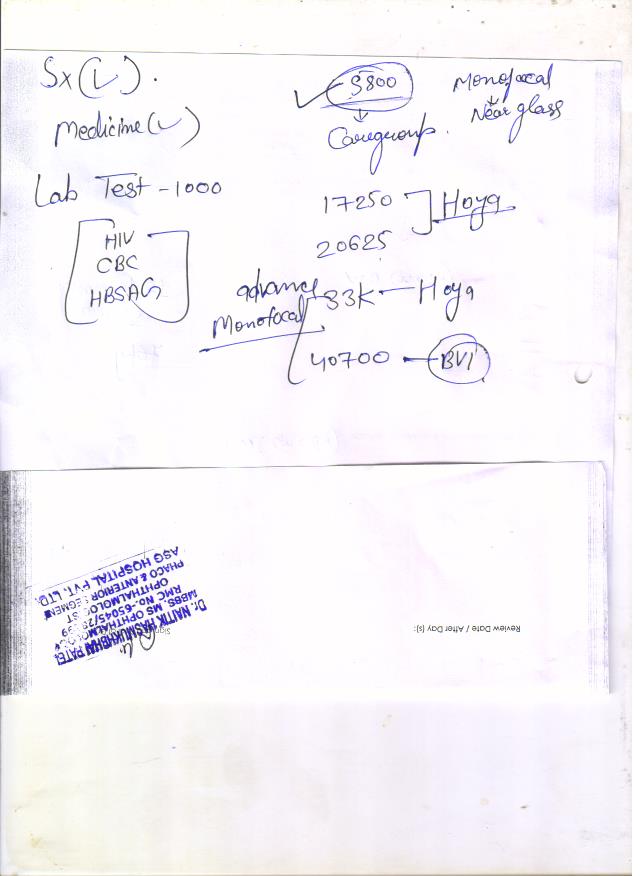 Sx (L).
Medicine (L)
Lab Test - 1000
HIV
CBC
HBSAG
9800
Caregroup.
Monofocal
Near glass
17250
20625
Hoya
advance
Monofocal
33K - Hoya
40700 - BVI
Review Date / After Day (s):
Dr. NAITIK HASMUKHBHAI PATEL
MBBS, MS OPHTHALMOLOGY
RMC No.-65045/
OPHTHALMOLOGIST
PHACO & ANTERIOR SEGMENT
ASG HOSPITAL PVT. LTD.